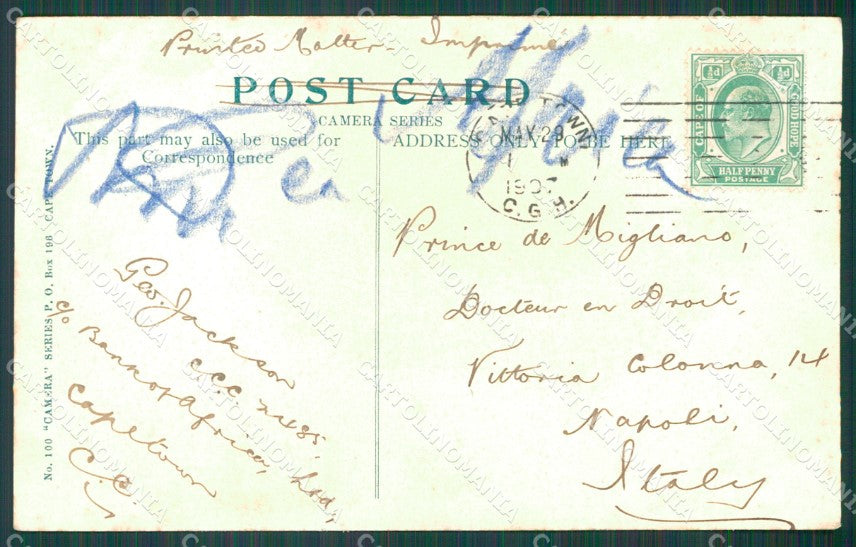 Printed Matter - Imprimé
POST CARD
CAMERA SERIES
This part may also be used for
Correspondence
ADDRESS ONLY TO BE HERE
CAPE TOWN
MAY 29
1907
C.G.H.
½d
½d
CAPE OF
GOOD HOPE
HALF PENNY
POSTAGE
No. 100 "CAMERA" SERIES, P. O. Box 196 CAPE TOWN.
Geo. Jackson
C.C.C. 2485,
c/o Bank of Africa, Ltd,
Capetown
C.C.
Prince de Migliano,
Docteur en Droit,
Vittoria Colonna, 14
Napoli,
Italy
CARTOLINOMANIA